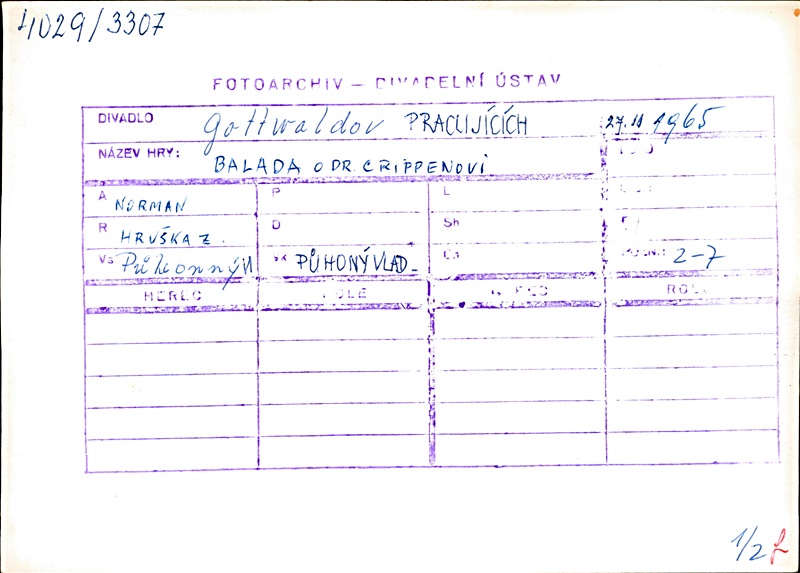 4029/3307
FOTOARCHIV – DIVADELNÍ ÚSTAV
DIVADLO Gottwaldov PRACUJÍCÍCH 27.11 1965
NÁZEV HRY: BALADA O DR. CRIPPENOVI
A NORMAN P L
R HRUŠKA Z. D Sh
Vs Půhonný Vl PŮHONÝ VLAD. 2-7
HEREC ROLE HEREC ROLE
1/2